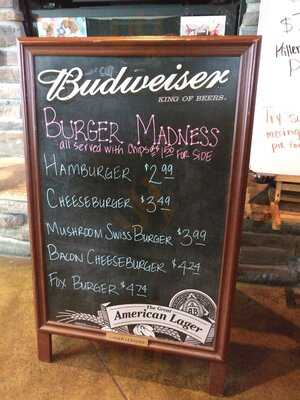 Budweiser
KING OF BEERS.
BURGER MADNESS
all served with chips $1.50 FOR SIDE
HAMBURGER $2.99
CHEESEBURGER $3.49
MUSHROOM SWISS BURGER $3.99
BACON CHEESEBURGER $4.24
FOX BURGER $4.74
The Great
American Lager
AB